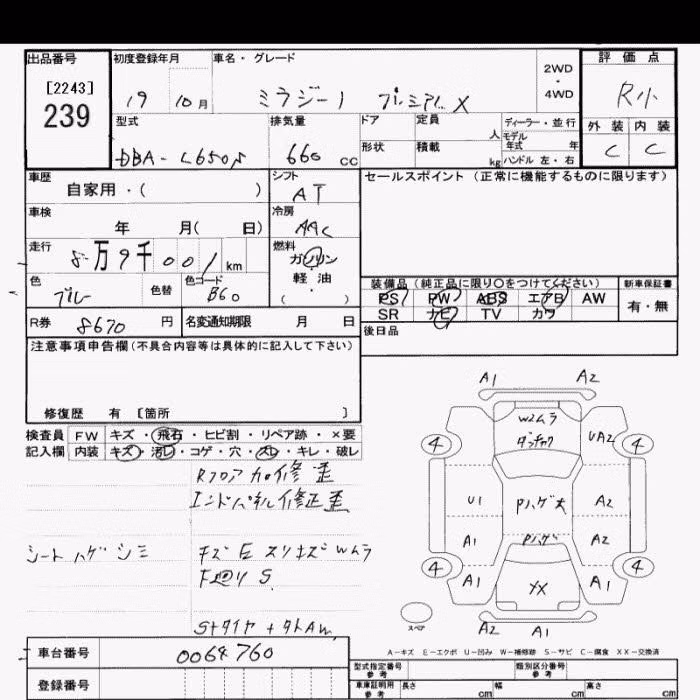 出品番号 初度登録年月 車名・グレード 評価点
[2243] 2WD
・
239 19 10月 ミラジーノ プレミアム X 4WD R小
型式 排気量 ドア 定員 人 ディーラー・並行 外装 内装
モデル年式 年
DBA-L650S 660 CC 形状 積載 kg ハンドル 左・右 C C
車歴 自家用・( ) シフト AT セールスポイント (正常に機能するものに限ります)
車検 年 月( 日) 冷房 AAC
走行 8万9千001km 燃料 ガソリン
軽油
・
( )
色 ブルー 色替 色コード B60
装備品 (純正品に限り○をつけてください) 新車保証書
PS PW ABS エアB AW 有・無
SR ナビ TV カワ
R券 8670円 名変通知期限 月 日 後日品
注意事項申告欄(不具合内容等は具体的に記入して下さい)
修復歴 有 [箇所 ]
検査員 FW キズ・飛石・ヒビ割・リペア跡・×要
記入欄 内装 キズ・汚レ・コゲ・穴・スレ・キレ・破レ
Rフロア 加修 歪
エンドパネル修正歪
シート ハゲ シミ キズ E スリキズ Wムラ
下廻り S
Sトタイヤ+タトAW
A1 A2
W2ムラ
4 UA2 4
U1 Pハゲ大 A2
A1 Pハゲ A2
4 4
A1 XX A1
スペア A2 A1
A-キズ E-エクボ U-凹み W-補修跡 S-サビ C-腐食 XX-交換済
車台番号 0064760
登録番号
型式指定番号 参考 類別区分番号 参考
車庫証明用 参考 長さ cm 幅 cm 高さ cm